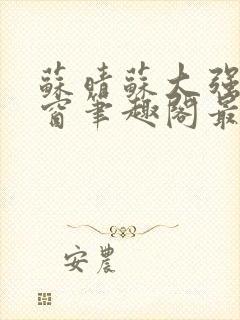 蘇晴蘇大強
窗筆趣閣最
安農